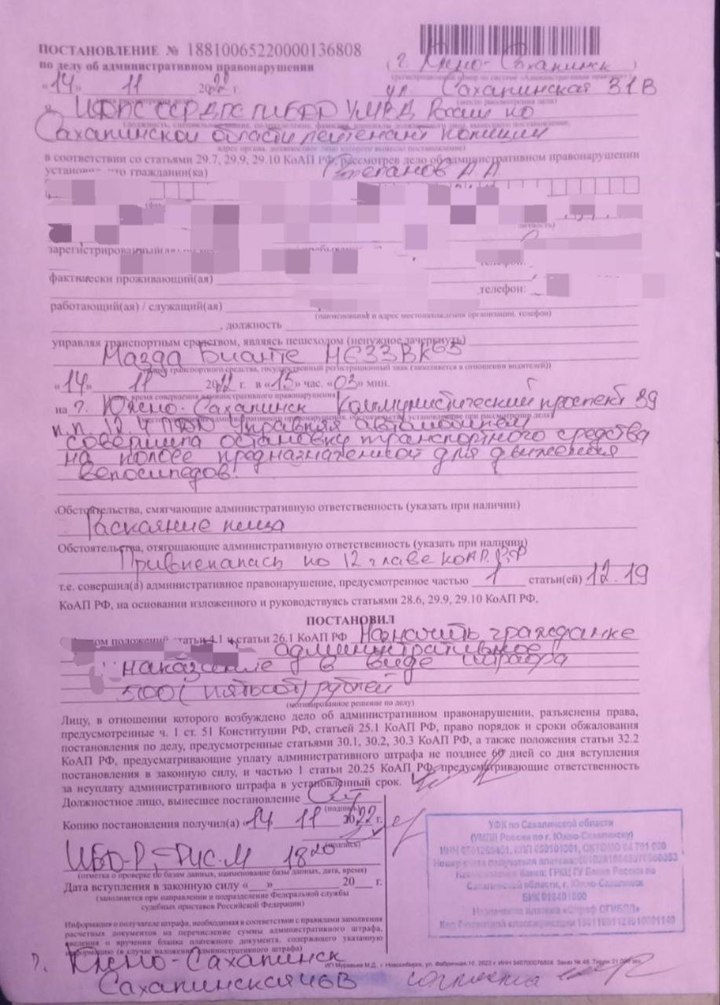 ПОСТАНОВЛЕНИЕ № 18810065220000136808
по делу об административном правонарушении
г. Южно-Сахалинск
«14» 11 2022
ул Сахалинская 31В
России по
Сахалинской области лейтенант полиции
в соответствии со статьями 29.7, 29.9, 29.10 КоАП РФ, рассмотрев дело об административном правонарушении
гражданин(ка)
зарегистрированный
телефон:
фактически проживающий(ая)
телефон:
работающий(ая) / служащий(ая)
(наименование и адрес местонахождения организации, телефон)
, должность
управляя транспортным средством, являясь пешеходом (ненужное зачеркнуть)
Мазда Бианте Н633ВК65
«14» 11 2022 г. в «15» час. «03» мин.
на г. Южно-Сахалинск Коммунистический проспект 39
управляя автомобилем
совершила остановку транспортного средства
на полосе предназначенной для движения
велосипедов.
Обстоятельства, смягчающие административную ответственность (указать при наличии)
Раскаяние лица
Обстоятельства, отягощающие административную ответственность (указать при наличии)
Привлекалась по 12 главе КоАП РФ
т.е. совершил(а) административное правонарушение, предусмотренное частью 1 статьи(ей) 12.19
КоАП РФ, на основании изложенного и руководствуясь статьями 28.6, 29.9, 29.10 КоАП РФ,
ПОСТАНОВИЛ
положений статьи 4.1 и статьи 26.1 КоАП РФ Назначить гражданке
административное
наказание в виде штрафа
500 (пятьсот) рублей
(мотивированное решение по делу)
Лицу, в отношении которого возбуждено дело об административном правонарушении, разъяснены права,
предусмотренные ч. 1 ст. 51 Конституции РФ, статьей 25.1 КоАП РФ, право порядок и сроки обжалования
постановления по делу, предусмотренные статьями 30.1, 30.2, 30.3 КоАП РФ, а также положения статьи 32.2
КоАП РФ, предусматривающие уплату административного штрафа не позднее 60 дней со дня вступления
постановления в законную силу, и частью 1 статьи 20.25 КоАП РФ, предусматривающие ответственность
за неуплату административного штрафа в установленный срок.
Должностное лицо, вынесшее постановление
(подпись)
Копию постановления получил(а) 14 11 2022 г.
18 20
(отметка о проверке по базам данных, наименование базы данных, дата, время)
Дата вступления в законную силу «__» 20__ г.
(заполняется при направлении в подразделение Федеральной службы
судебных приставов Российской Федерации)
Информация о получателе штрафа, необходимая в соответствии с правилами заполнения
расчетных документов на перечисление суммы административного штрафа,
сведения о вручении бланка платежного документа, содержащего указанную
информацию (в случае наложения административного штрафа)
УФК по Сахалинской области
(УМВД России по г. Южно-Сахалинску)
г. Южно-Сахалинск
Сахалинская 46В
согласна